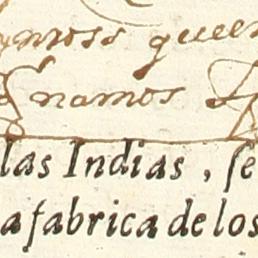 queen
namos
las Indias, ſe
a fabrica de los